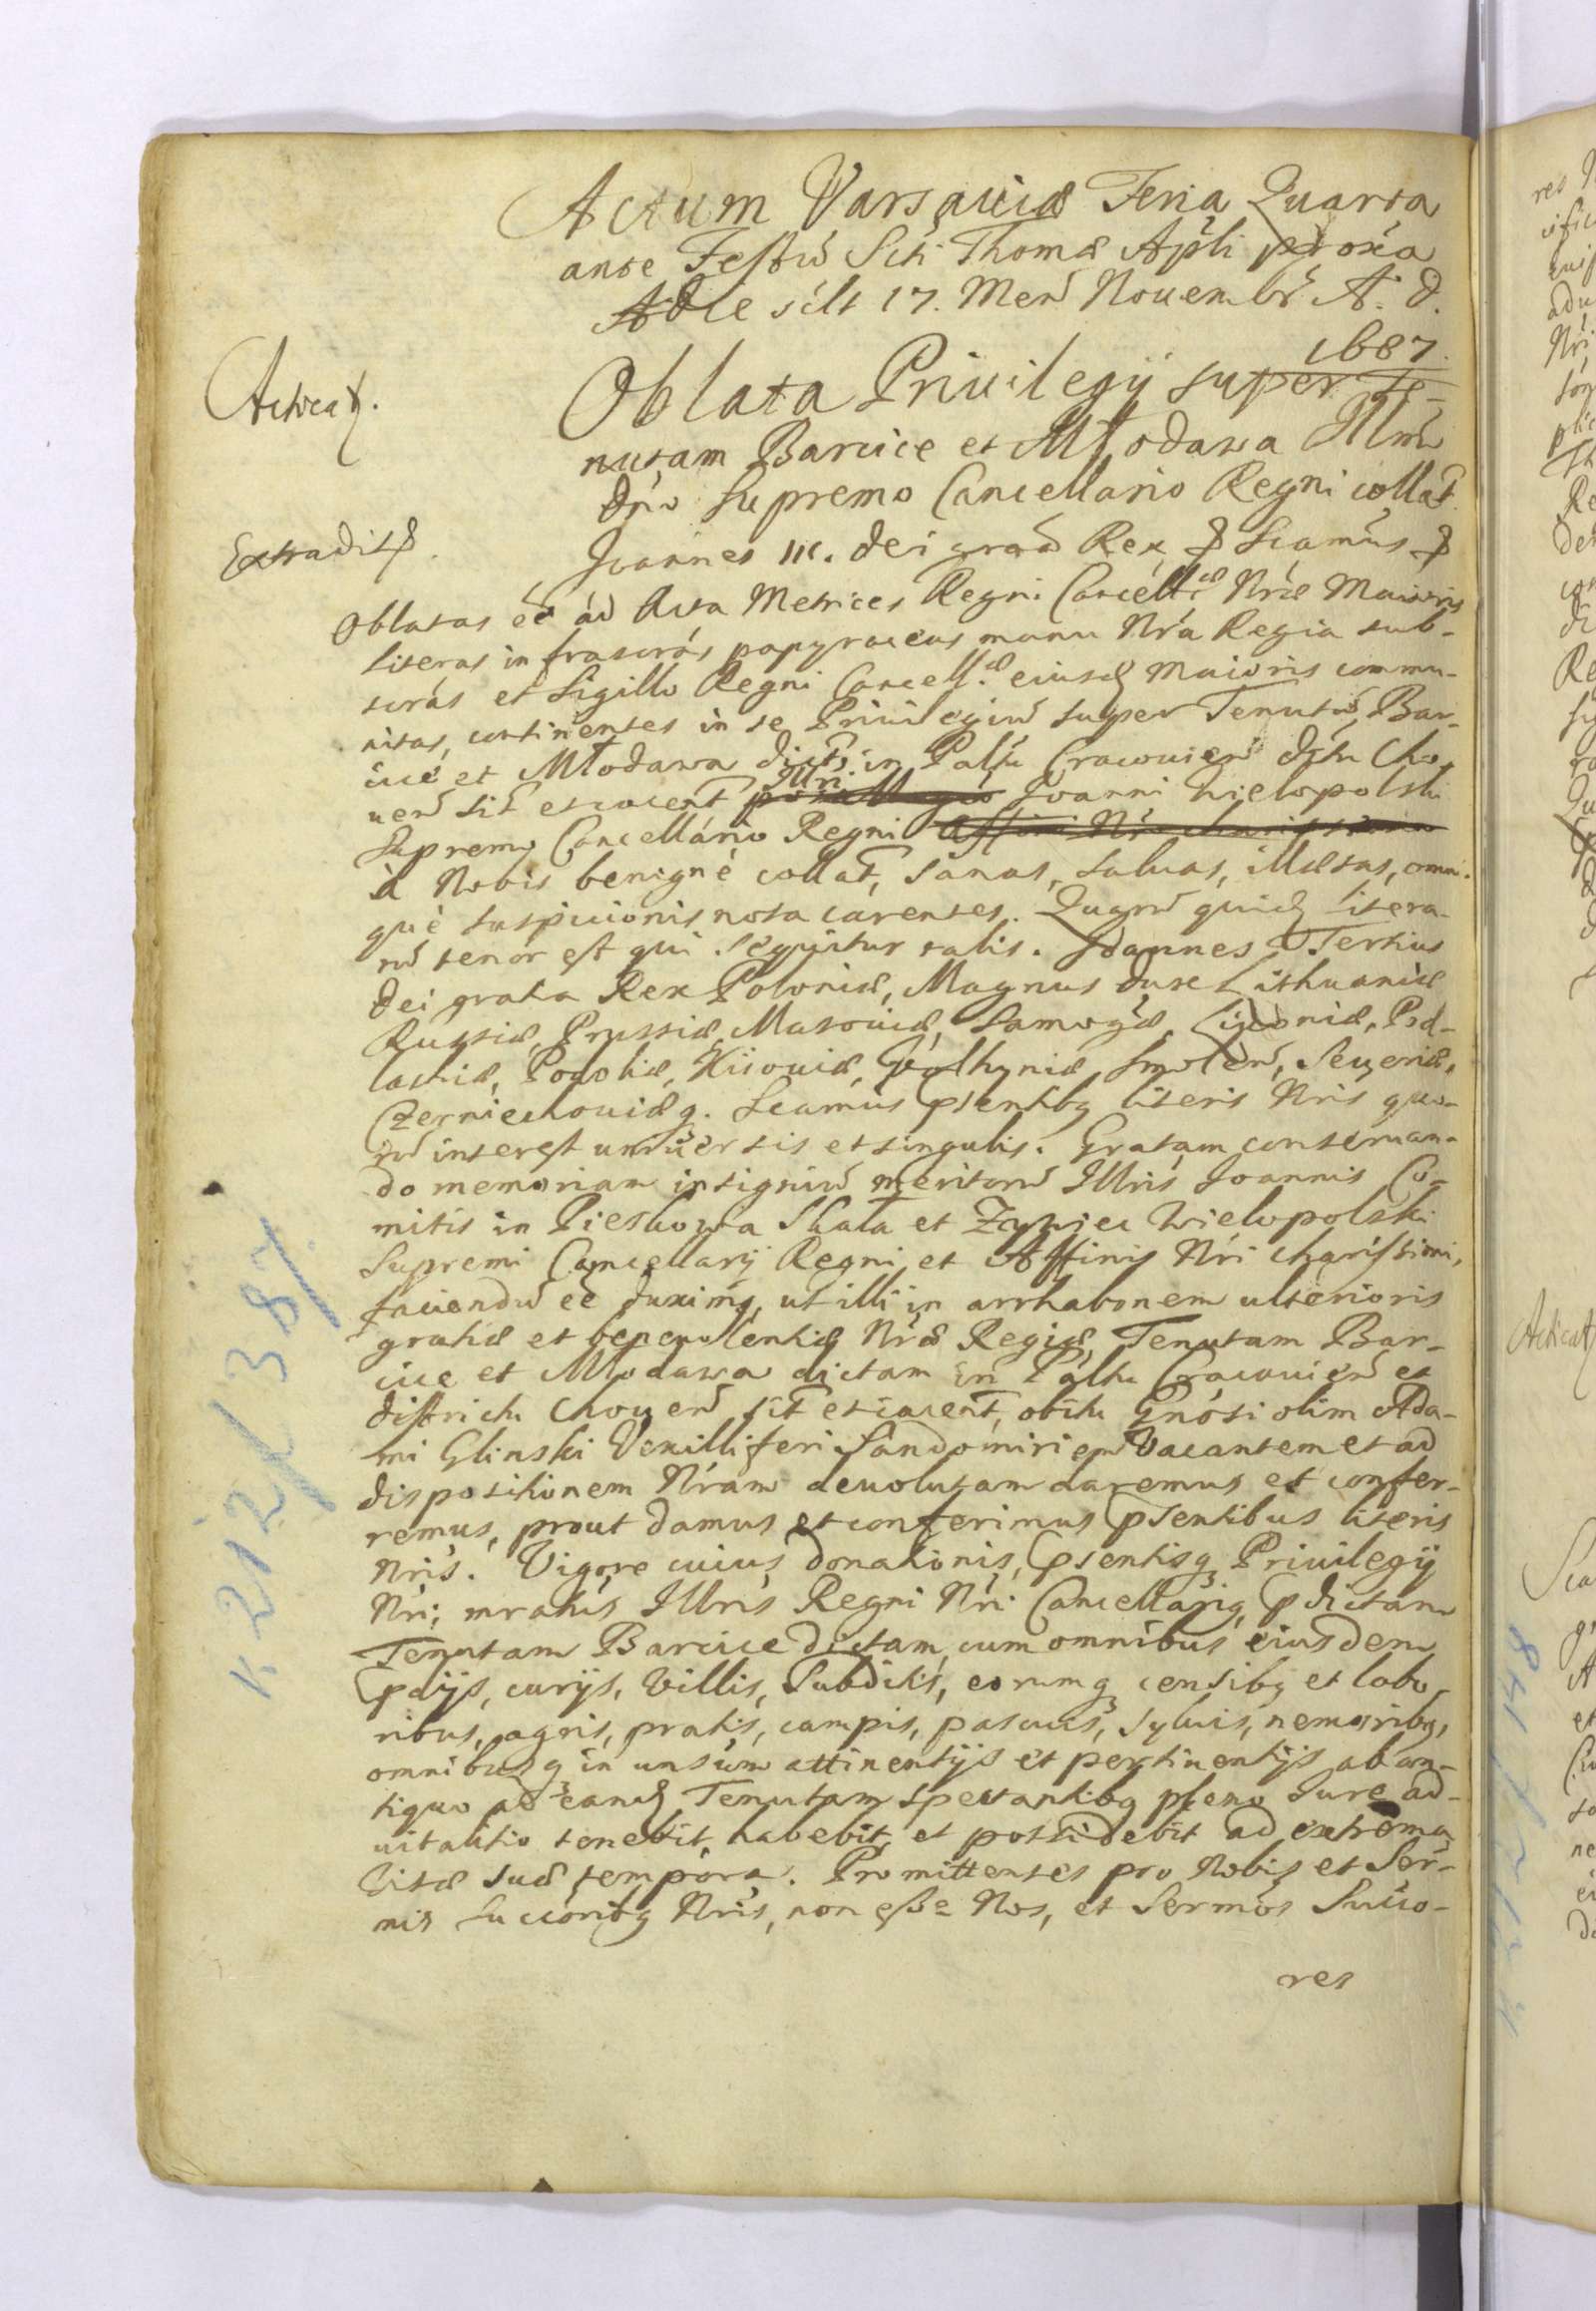 Actum Varsaviæ Feria Quarta
ante Festũ Scti Thomæ Apli proxa
die sclt 17. Men Nouembr A. D.
1687.
Oblata Priuilegij super Te-
nutam Barcice et Młodawa Illmo
Dno Supremo Cancellario Regni collat
Acticat.
Extradit.
Joannes III. Dei gratia Rex & Scamus &
Oblatas eē ad Acta Metrices Regni Cancellæ Nræ Maioris
literas infrascras papyraceas manu Nra Regia sub-
scras et Sigillo Regni Cancellæ eiusd Maioris commu-
nitas, continentes in se Priuilegiũ super Tenutã Bar-
cice et Młodawa dict, in Paltu Cracouien dstu Cho-
uen sit et iacent Illri Joanni Wielopolski
Supremo Cancellario Regni
à Nobis benignè collat, sanas, saluas, illæsas, omni-
què suspicionis nota carentes. Quarũ quid litera-
rũ tenor est qui sequitur talis. Joannes Tertius
Dei gratia Rex Poloniæ, Magnus Dux Lithuaniæ
Russiæ, Prussiæ, Masouiæ, Samogæ, Liuoniæ, Pod-
lachiæ, Podoliæ, Kiiouiæ, Volhyniæ, Smolen, Seueriæ,
Czerniechouiæq. Scamus psentibq literis Nris quo-
rũ interest uniuersis et singulis. Gratam conseruan-
do memoriam insigniũ meritorũ Illris Joannis Co-
mitis in Pieskowa Skała et Zywiec Wielopolski
Supremi Cancellarij Regni, et Affinis Nri charissimi,
faciendũ eē duximq, ut illi in arrhabonem ulterioris
gratiæ et beneuolentiæ Nræ Regiæ, Tenutam Bar-
cice et Młodawa dictam in Paltu Cracouien et
districtu Chouen sit et iacent, obitu Gnosi olim Ada-
mi Glinski Vexilliferi Sandomirien Vacantem et ad
dispositionem Nram deuolutam daremus et confer-
remus, prout damus et conferimus psentibus literis
Nris. Vigore cuius donationis, psentisq Priuilegij
Nri, mratus Illris Regni Nri Cancellariq pdictam
Tenutam Barcice dictam, cum omnibus eiusdem
pdijs, curijs, Villis, Subditis, eorumq censibq et labo-
ribus, agris, pratis, campis, pascuis, syluis, nemoribq,
omnibusq in unsum attinentijs et pertinentijs ab an-
tiquo ad eand Tenutam spectantibq pleno Iure ad-
uitalitio tenebit, habebit et possidebit ad extrema
Vitæ suæ tempora. Promittentes pro Nobis et Ser-
mis Succoribq Nris, non esse Nos, et Sermos Succo-
res
K 212/387